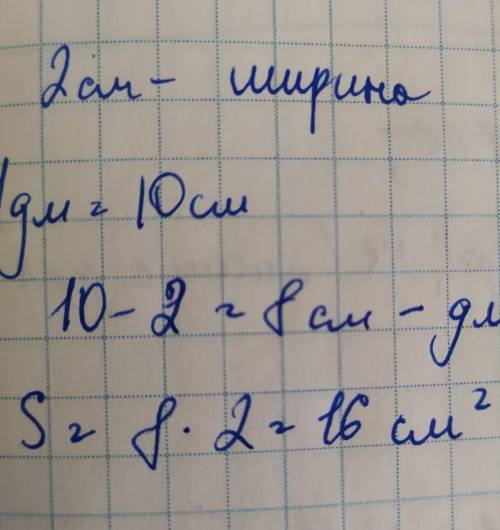 2см - ширина
1дм = 10см
10 - 2 = 8см - дл
S = 8 · 2 = 16 см²